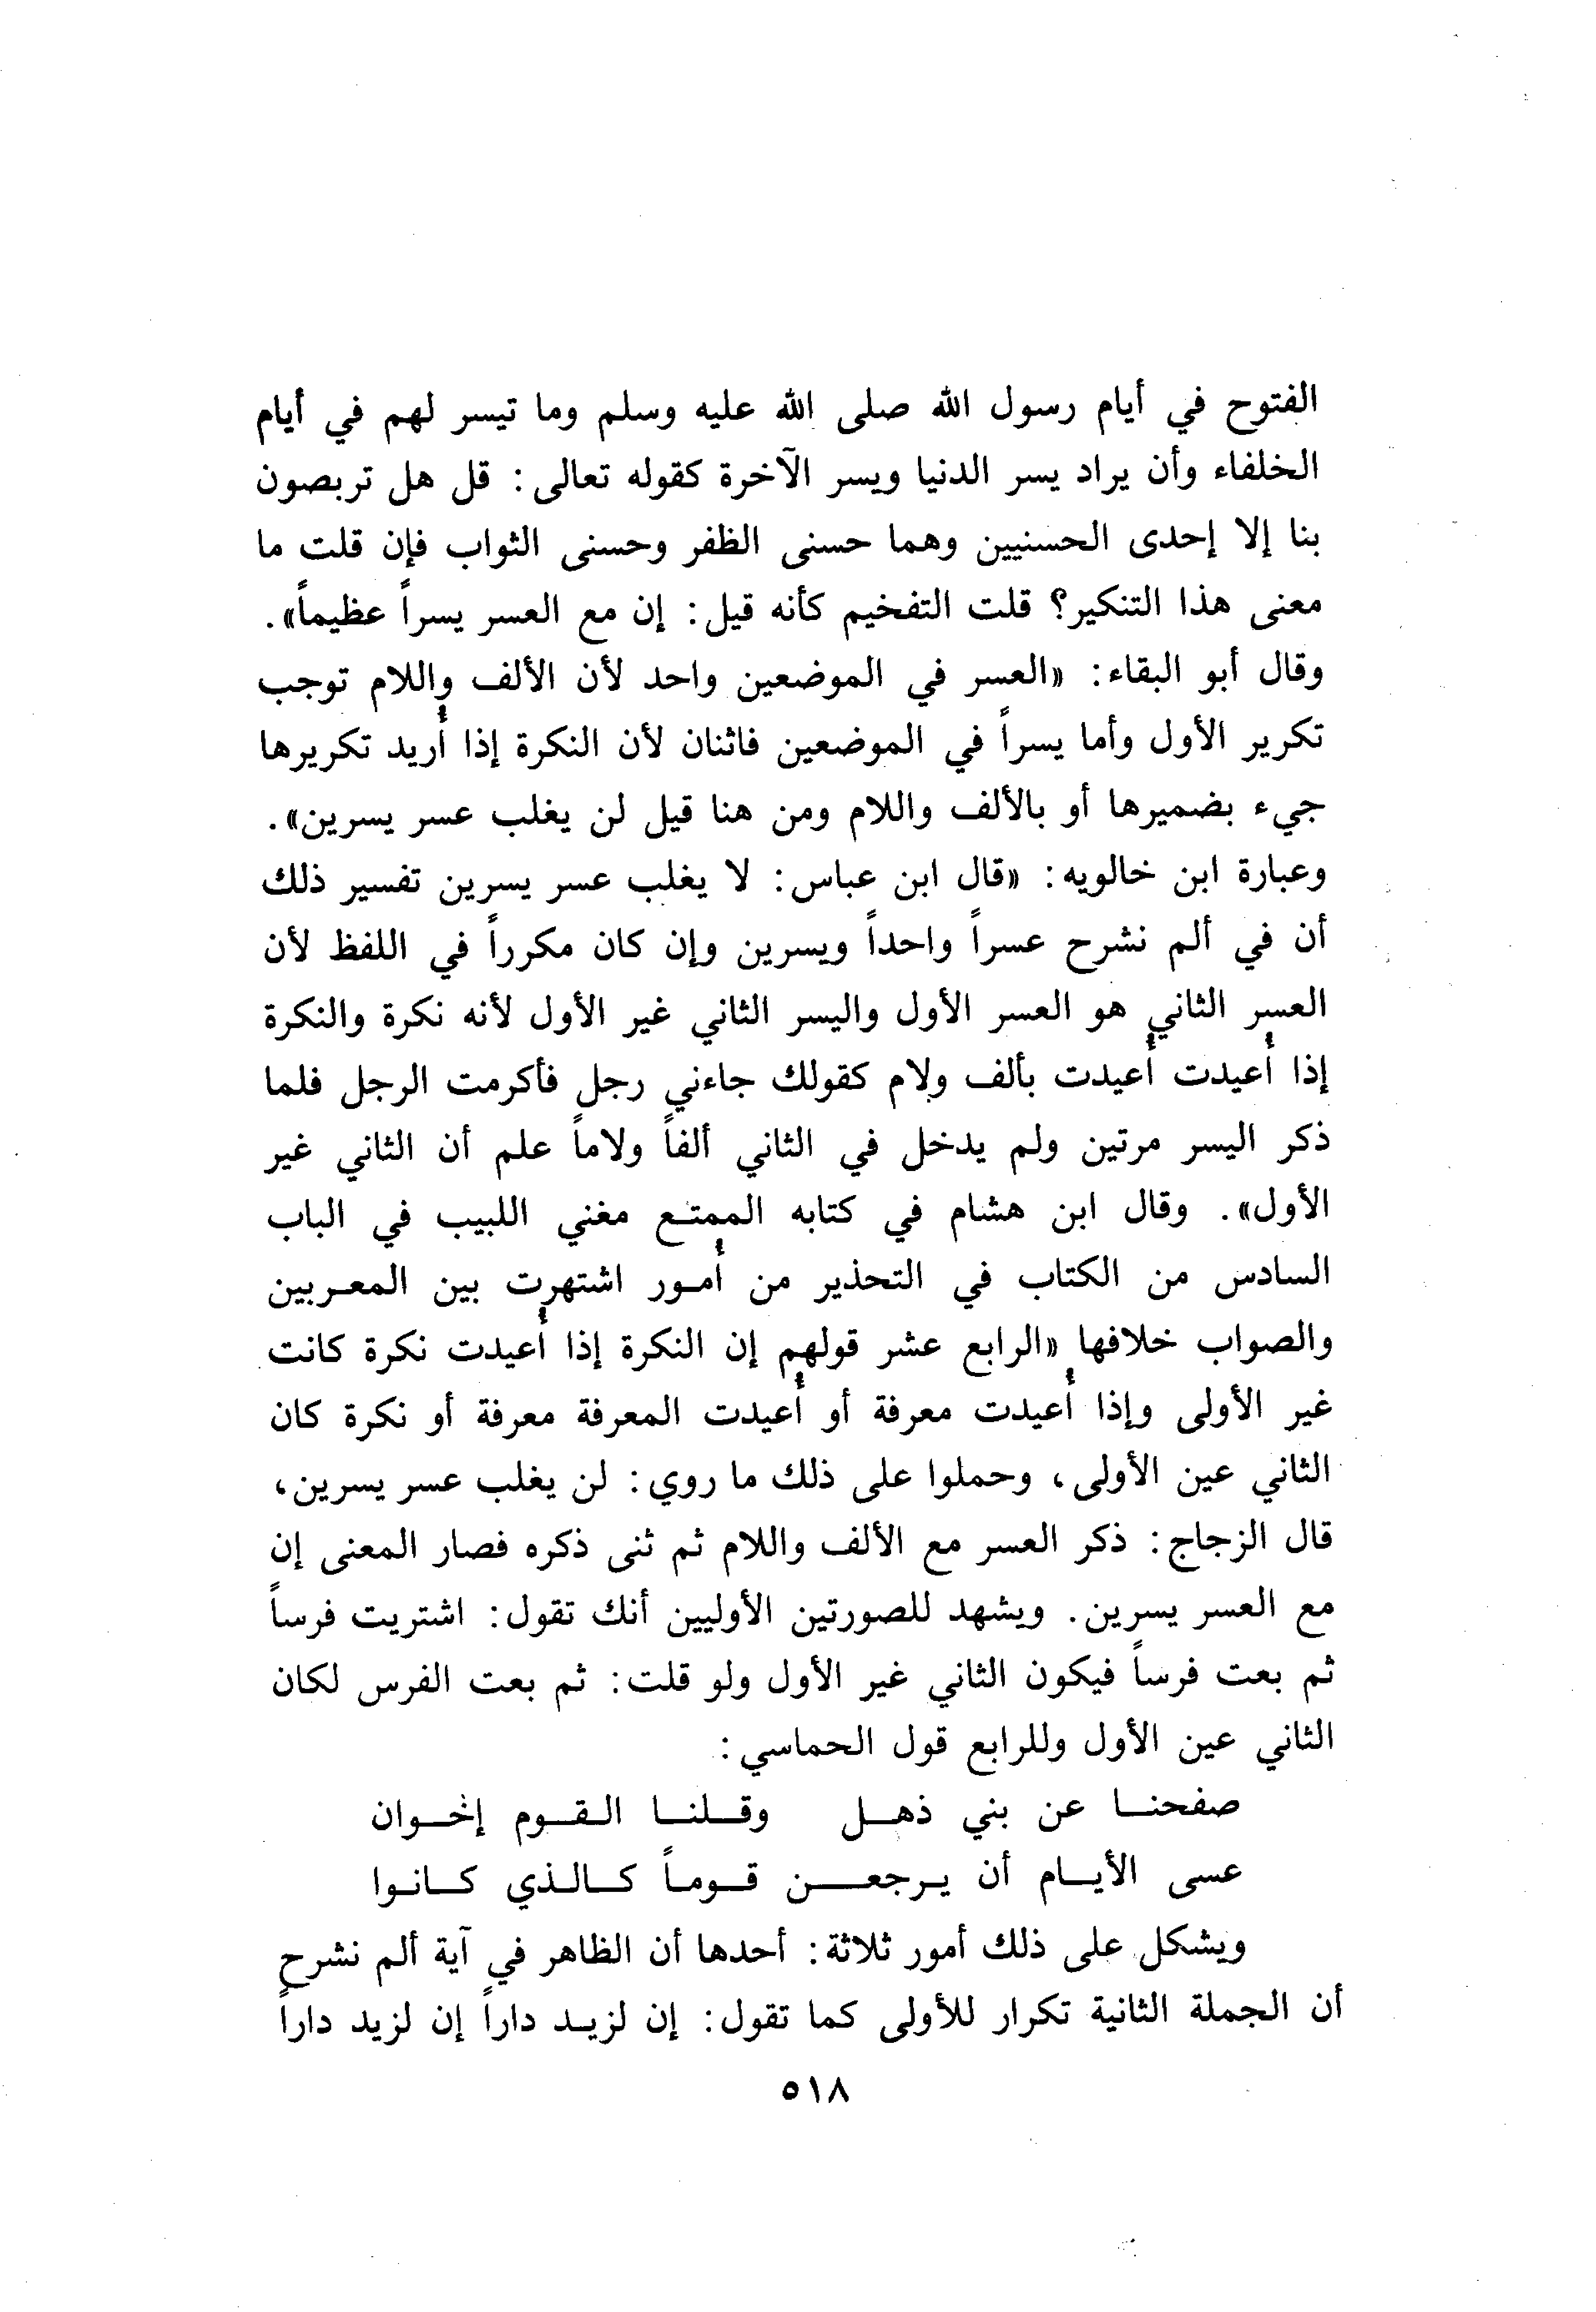 الفتوح في أيام رسول الله صلى الله عليه وسلم وما تيسر لهم في أيام
الخلفاء وأن يراد يسر الدنيا ويسر الآخرة كقوله تعالى : قل هل تربصون
بنا إلا إحدى الحسنيين وهما حسنى الظفر وحسنى الثواب فإن قلت ما
معنى هذا التنكير؟ قلت التفخيم كأنه قيل : إن مع العسر يسراً عظيماً».
وقال أبو البقاء : «العسر في الموضعين واحد لأن الألف واللام توجب
تكرير الأول وأما يسراً في الموضعين فاثنان لأن النكرة إذا أُريد تكريرها
جيء بضميرها أو بالألف واللام ومن هنا قيل لن يغلب عسر يسرين».
وعبارة ابن خالويه : «قال ابن عباس : لا يغلب عسر يسرين تفسير ذلك
أن في ألم نشرح عسراً واحداً ويسرين وإن كان مكرراً في اللفظ لأن
العسر الثاني هو العسر الأول واليسر الثاني غير الأول لأنه نكرة والنكرة
إذا أُعيدت أُعيدت بألف ولام كقولك جاءني رجل فأكرمت الرجل فلما
ذكر اليسر مرتين ولم يدخل في الثاني ألفاً ولاماً علم أن الثاني غير
الأول». وقال ابن هشام في كتابه الممتع مغني اللبيب في الباب
السادس من الكتاب في التحذير من أُمور اشتهرت بين المعربين
والصواب خلافها «الرابع عشر قولهم إن النكرة إذا أُعيدت نكرة كانت
غير الأولى وإذا أُعيدت معرفة أو أُعيدت المعرفة معرفة أو نكرة كان
الثاني عين الأولى، وحملوا على ذلك ما روي : لن يغلب عسر يسرين،
قال الزجاج : ذكر العسر مع الألف واللام ثم ثنى ذكره فصار المعنى إن
مع العسر يسرين. ويشهد للصورتين الأوليين أنك تقول : اشتريت فرساً
ثم بعت فرساً فيكون الثاني غير الأول ولو قلت : ثم بعت الفرس لكان
الثاني عين الأول وللرابع قول الحماسي :
صفحنا عن بني ذهل وقلنا القوم إخوان
عسى الأيام أن يرجعن قوماً كالذي كانوا
ويشكل على ذلك أمور ثلاثة : أحدها أن الظاهر في آية ألم نشرح
أن الجملة الثانية تكرار للأولى كما تقول : إن لزيد داراً إن لزيد داراً
٥١٨